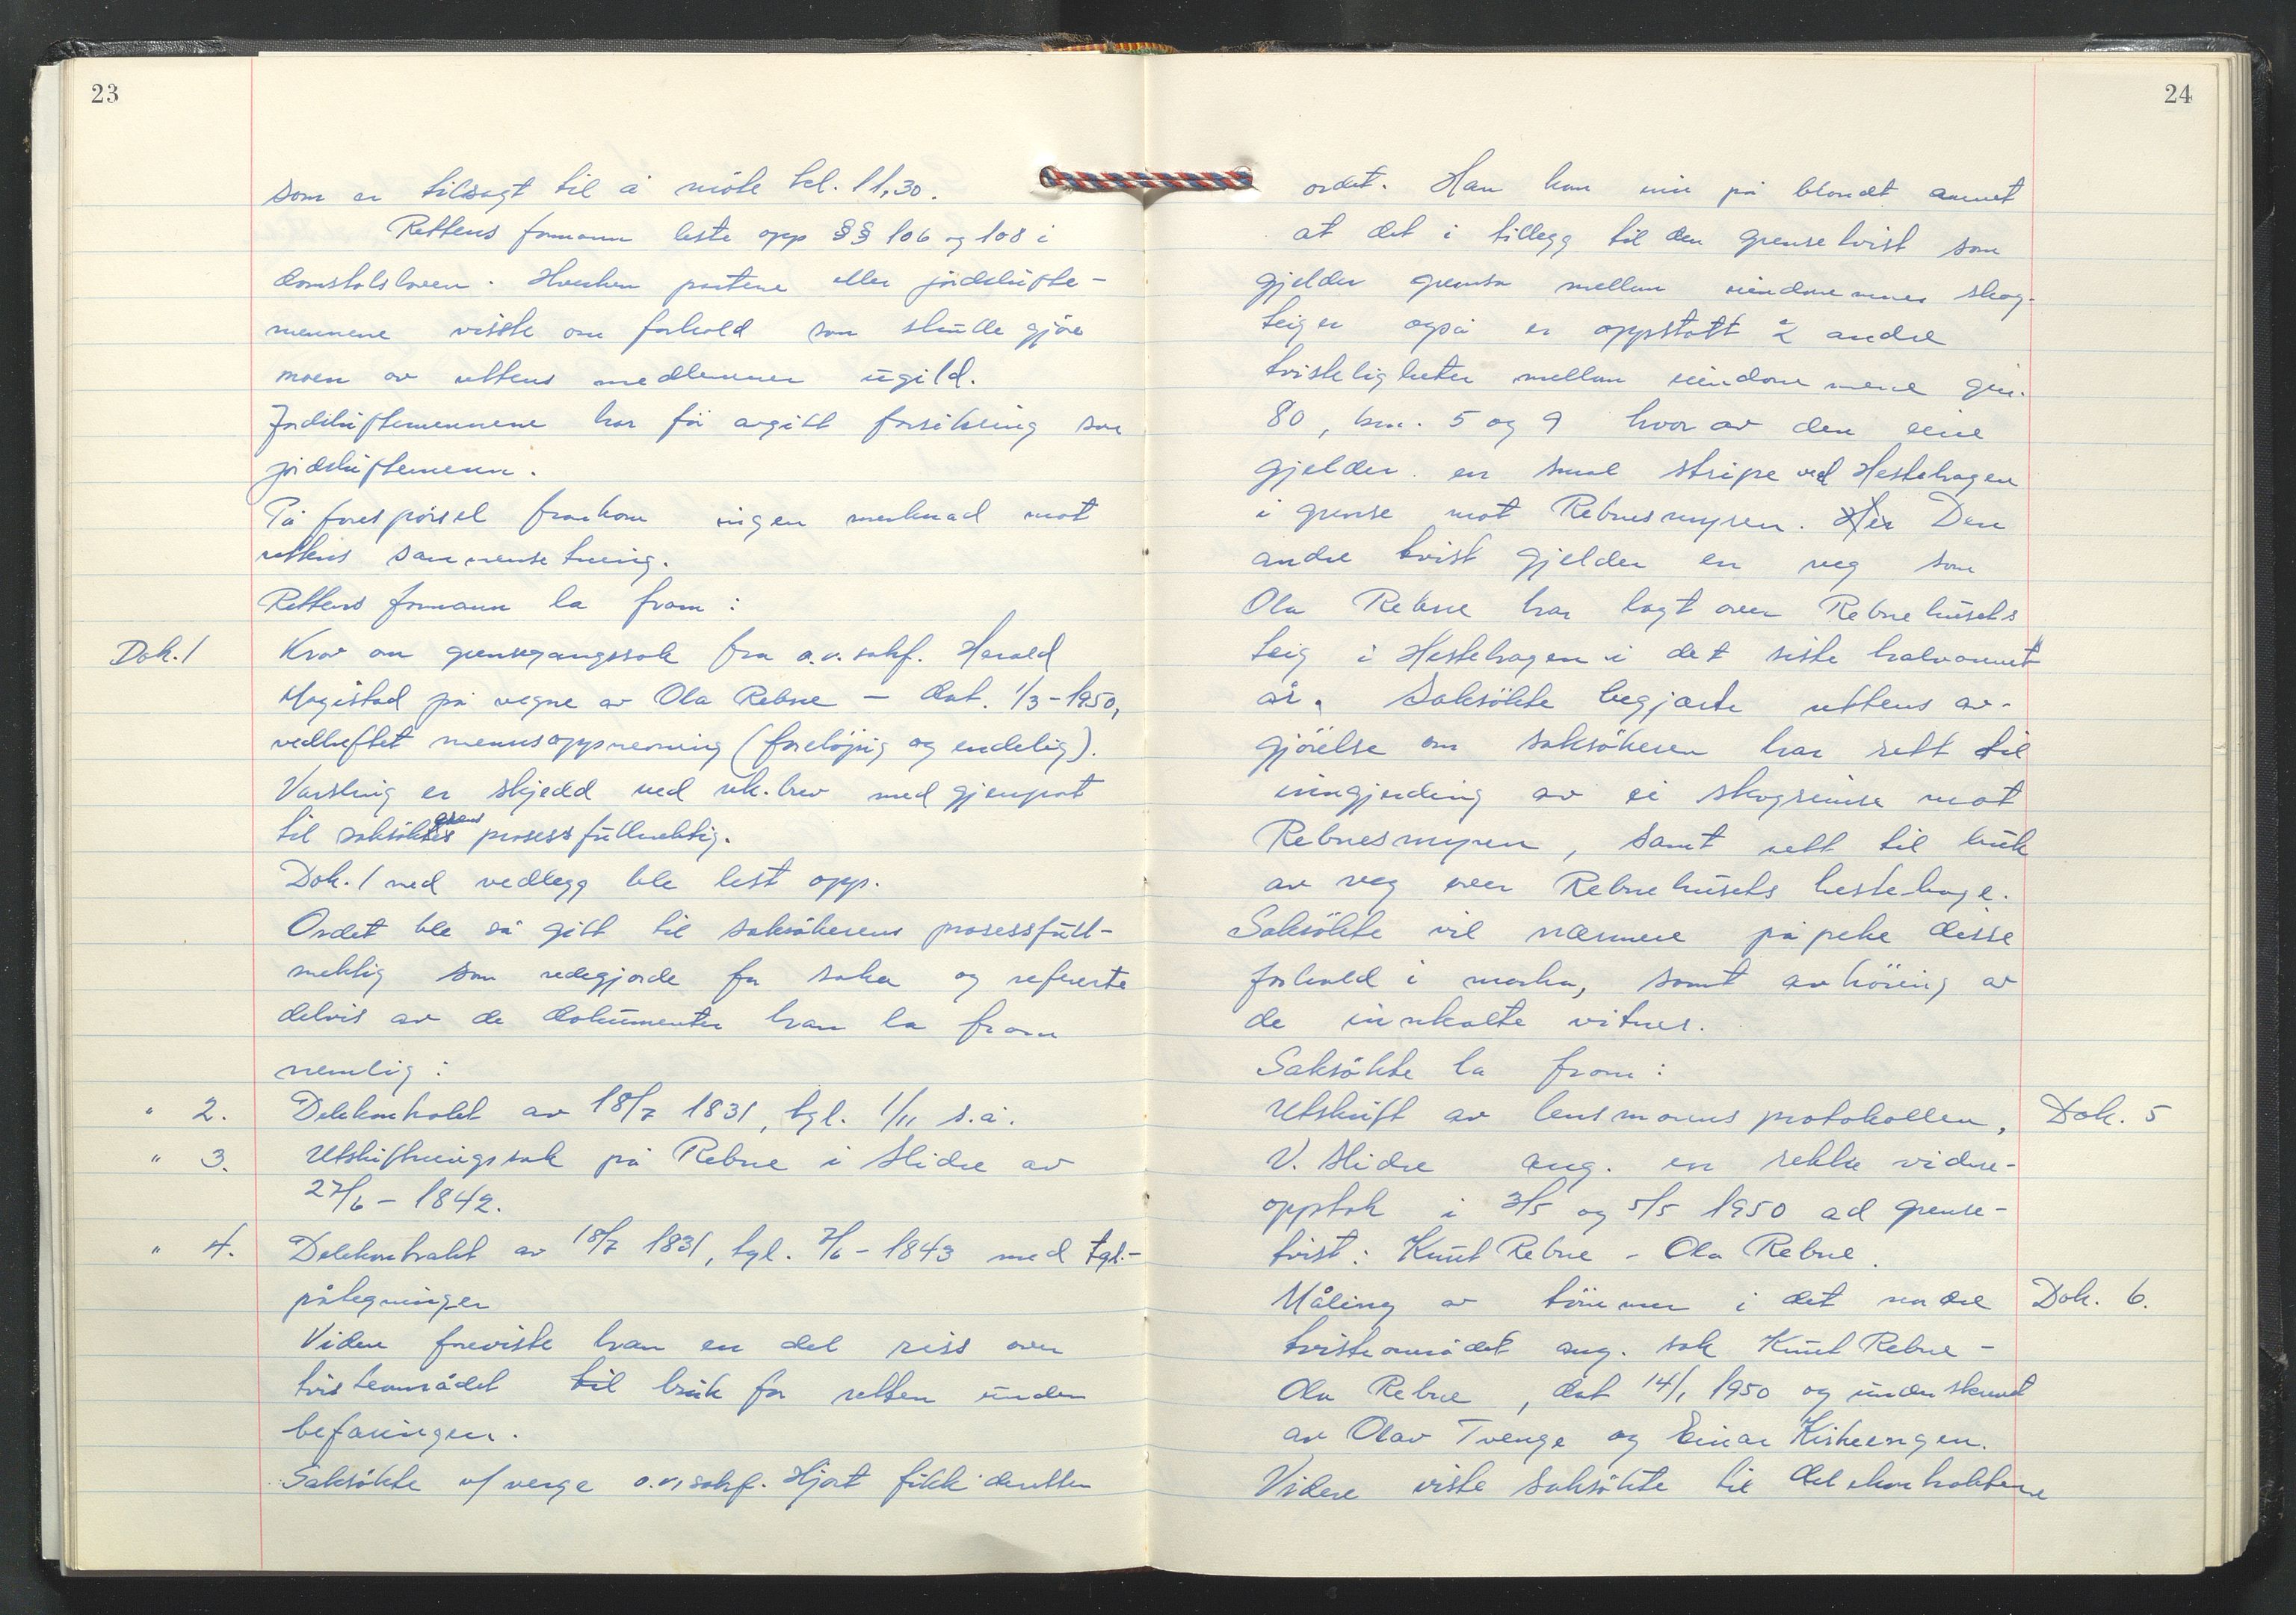 23
som er tilsagt til å møte kl. 11,30.
Rettens formann leste opp §§ 106 og 108 i
domstolsloven. Hverken partene eller jordskifte-
mennene visste om forhold som skulle gjøre
noen av rettens medlemmer ugild.
Jordskiftemennene har før avgitt forsikring som
jordskiftemenn.
På forespørsel framkom ingen merknad mot
rettens sammensetning.
Rettens formann la fram:
Dok. 1 Krav om grensegangssak fra o.r.sakf. Harald
Mogistad på vegne av Ola Rebne - dat. 1/3-1950,
vedheftet mennsoppnevning (foreløpig og endelig).
Varsling er skjedd ved rek. brev med gjenpart
til saksøktes prosessfullmektig.
Dok. 1 med vedlegg ble lest opp.
Ordet ble så gitt til saksøkerens prosessfull-
mektig som redegjorde for saka og refererte
delvis av de dokumenter han la fram
nemlig:
" 2. Delekontrakt av 18/7 1831, tgl. 1/11 s.å.
" 3. Utskiftningssak på Rebne i Slidre av
27/6 - 1842.
" 4. Delekontrakt av 18/7 1831, tgl. 7/6 - 1843 med tgl.-
påtegninger
Videre foreviste han en del riss over
tvisteområdet til bruk for retten under
befaringen.
Saksøkte v/ verge o.r.sakf. Hjort fikk deretter
24
ordet. Han kom inn på blandt annet
at det i tillegg til den grensetvist som
gjelder grensa mellom eiendommenes skog-
teiger også er oppstått 2 andre
tvisteligheter mellom eiendommene gnr.
80, bnr. 5 og 9 hvor av den eine
gjelder en smal stripe ved Hestehagen
i grense mot Rebnesmyren. Her Den
andre tvist gjelder en veg som
Ola Rebne har lagt over Rebnehusets
teig i Hestehagen i det siste halvannet
år. Saksøkte begjærte rettens av-
gjørelse om saksøkeren har rett til
inngjerding av ei skogreimse mot
Rebnesmyren, samt rett til bruk
av veg over Rebnehusets hestehage.
Saksøkte vil nærmere påpeke disse
forhold i marka, samt avhøring av
de innkalte vitner.
Saksøkte la fram:
Utskrift av lensmannsprotokollen, Dok. 5
V. Slidre ang. en rekke vidne-
opptak i 3/5 og 5/5 1950 ad grense-
tvist: Knut Rebne - Ola Rebne.
Måling av tømmer i det nedre Dok. 6.
tvisteområdet ang. sak Knut Rebne -
Ola Rebne, dat 14/1 1950 og underskrevet
av Olav Tvenge og Einar Kirkeengen.
Videre viste saksøkte til delekontraktene